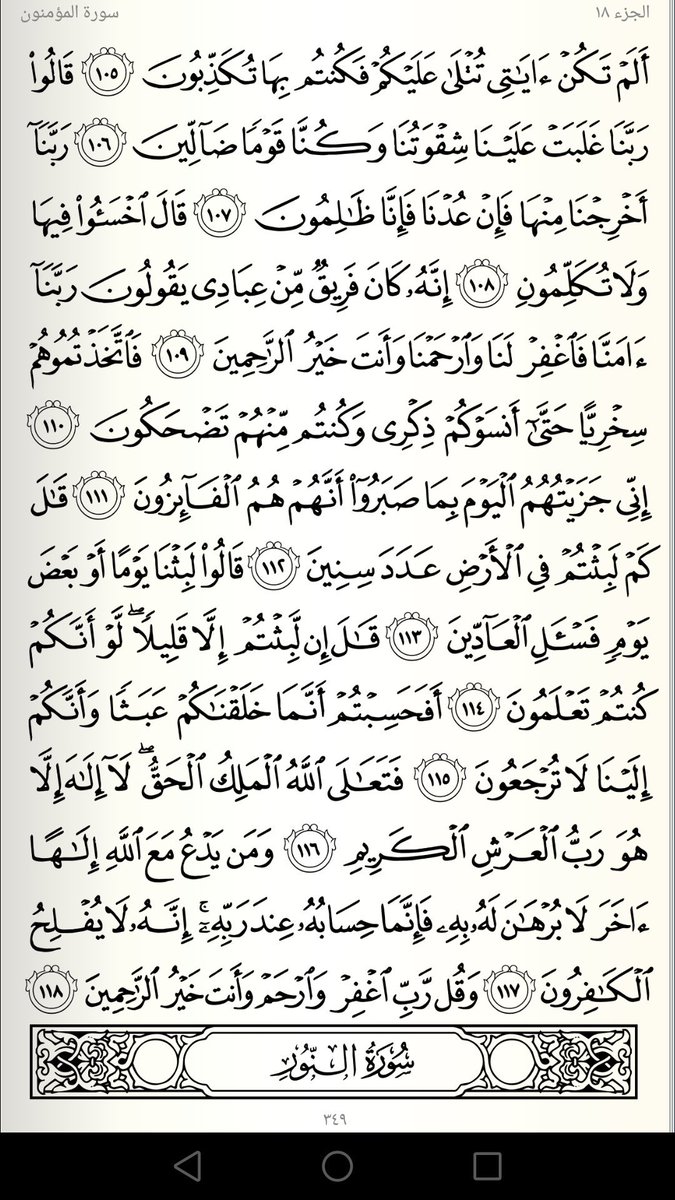 الجزء ١٨
سورة المؤمنون
أَلَمْ تَكُنْ ءَايَٰتِى تُتْلَىٰ عَلَيْكُمْ فَكُنتُم بِهَا تُكَذِّبُونَ ١٠٥ قَالُوا۟
رَبَّنَا غَلَبَتْ عَلَيْنَا شِقْوَتُنَا وَكُنَّا قَوْمًا ضَآلِّينَ ١٠٦ رَبَّنَآ
أَخْرِجْنَا مِنْهَا فَإِنْ عُدْنَا فَإِنَّا ظَٰلِمُونَ ١٠٧ قَالَ ٱخْسَـُٔوا۟ فِيهَا
وَلَا تُكَلِّمُونِ ١٠٨ إِنَّهُۥ كَانَ فَرِيقٌ مِّنْ عِبَادِى يَقُولُونَ رَبَّنَآ
ءَامَنَّا فَٱغْفِرْ لَنَا وَٱرْحَمْنَا وَأَنتَ خَيْرُ ٱلرَّٰحِمِينَ ١٠٩ فَٱتَّخَذْتُمُوهُمْ
سِخْرِيًّا حَتَّىٰٓ أَنسَوْكُمْ ذِكْرِى وَكُنتُم مِّنْهُمْ تَضْحَكُونَ ١١٠
إِنِّى جَزَيْتُهُمُ ٱلْيَوْمَ بِمَا صَبَرُوٓا۟ أَنَّهُمْ هُمُ ٱلْفَآئِزُونَ ١١١ قَٰلَ
كَمْ لَبِثْتُمْ فِى ٱلْأَرْضِ عَدَدَ سِنِينَ ١١٢ قَالُوا۟ لَبِثْنَا يَوْمًا أَوْ بَعْضَ
يَوْمٍ فَسْـَٔلِ ٱلْعَآدِّينَ ١١٣ قَٰلَ إِن لَّبِثْتُمْ إِلَّا قَلِيلًا ۖ لَّوْ أَنَّكُمْ
كُنتُمْ تَعْلَمُونَ ١١٤ أَفَحَسِبْتُمْ أَنَّمَا خَلَقْنَٰكُمْ عَبَثًا وَأَنَّكُمْ
إِلَيْنَا لَا تُرْجَعُونَ ١١٥ فَتَعَٰلَى ٱللَّهُ ٱلْمَلِكُ ٱلْحَقُّ ۖ لَآ إِلَٰهَ إِلَّا
هُوَ رَبُّ ٱلْعَرْشِ ٱلْكَرِيمِ ١١٦ وَمَن يَدْعُ مَعَ ٱللَّهِ إِلَٰهًا
ءَاخَرَ لَا بُرْهَٰنَ لَهُۥ بِهِۦ فَإِنَّمَا حِسَابُهُۥ عِندَ رَبِّهِۦٓ ۚ إِنَّهُۥ لَا يُفْلِحُ
ٱلْكَٰفِرُونَ ١١٧ وَقُل رَّبِّ ٱغْفِرْ وَٱرْحَمْ وَأَنتَ خَيْرُ ٱلرَّٰحِمِينَ ١١٨
سُورَةُ النُّورِ
٣٤٩